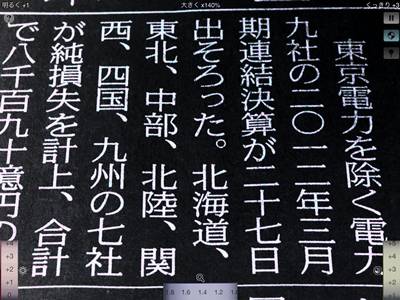 明るく +1
大きく x140%
くっきり +3
東京電力を除く電力
九社の二〇一二年三月
期連結決算が二十七日
出そろった。北海道、
東北、中部、北陸、関
西、四国、九州の七社
が純損失を計上、合計
で八千百九十億円の
+3
+2
+1
1.8 1.6 1.4 1.2 1.